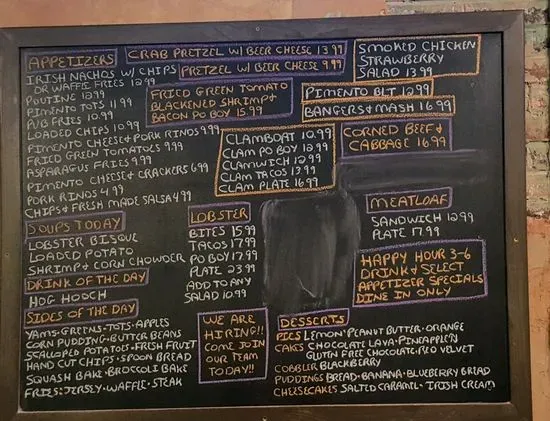 APPETIZERS
IRISH NACHOS W/ CHIPS
OR WAFFE FRIES 12.99
POUTINE 12.99
PIMENTO TOTS 11.99
PUB FRIES 10.99
LOADED CHIPS 10.99
PIMENTO CHEESE & PORK RINDS 9.99
FRIED GREEN TOMATOES 9.99
ASPARAGUS FRIES 9.99
PIMENTO CHEESE & CRACKERS 6.99
PORK RINDS 4.99
CHIPS & FRESH MADE SALSA 4.99
CRAB PRETZEL W/ BEER CHEESE 13.99
PRETZEL W/ BEER CHEESE 9.99
FRIED GREEN TOMATO
BLACKENED SHRIMP &
BACON PO BOY 15.99
SMOKED CHICKEN
STRAWBERRY
SALAD 13.99
PIMENTO BLT 12.99
BANGERS & MASH 16.99
CLAMBOAT 10.99
CLAM PO BOY 12.99
CLAMWICH 12.99
CLAM TACOS 13.99
CLAM PLATE 16.99
CORNED BEEF &
CABBAGE 16.99
SOUPS TODAY
LOBSTER BISQUE
LOADED POTATO
SHRIMP & CORN CHOWDER
DRINK OF THE DAY
HOG HOOCH
SIDES OF THE DAY
YAMS · GREENS · TOTS · APPLES
CORN PUDDING · BUTTER BEANS
SCALLOPED POTATOES · FRESH FRUIT
HAND CUT CHIPS · SPOON BREAD
SQUASH BAKE · BROCCOLI BAKE
FRIES: JERSEY · WAFFLE · STEAK
LOBSTER
BITES 15.99
TACOS 17.99
PO BOY 17.99
PLATE 23.99
ADD TO ANY
SALAD 10.99
MEATLOAF
SANDWICH 12.99
PLATE 17.99
HAPPY HOUR 3-6
DRINK & SELECT
APPETIZER SPECIALS
DINE IN ONLY
WE ARE
HIRING!!
COME JOIN
OUR TEAM
TODAY!!
DESSERTS
PIES LEMON · PEANUT BUTTER · ORANGE
CAKES CHOCOLATE LAVA · PINEAPPLE
GLUTEN FREE CHOCOLATE · RED VELVET
COBBLER BLACKBERRY
PUDDINGS BREAD · BANANA · BLUEBERRY BREAD
CHEESECAKES SALTED CARAMEL · IRISH CREAM